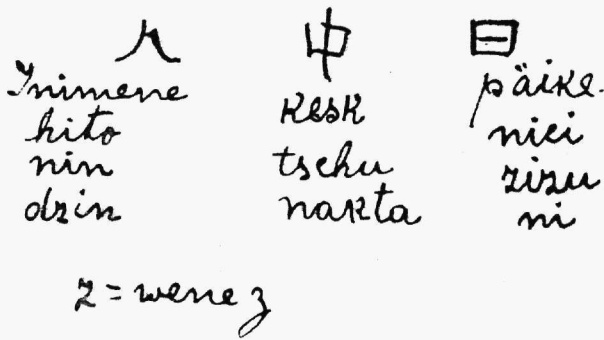 人
Inimene
hito
nin
dzin
中
kesk
tschu
nakta
日
päike.
nici
zizu
ni
z = wene z